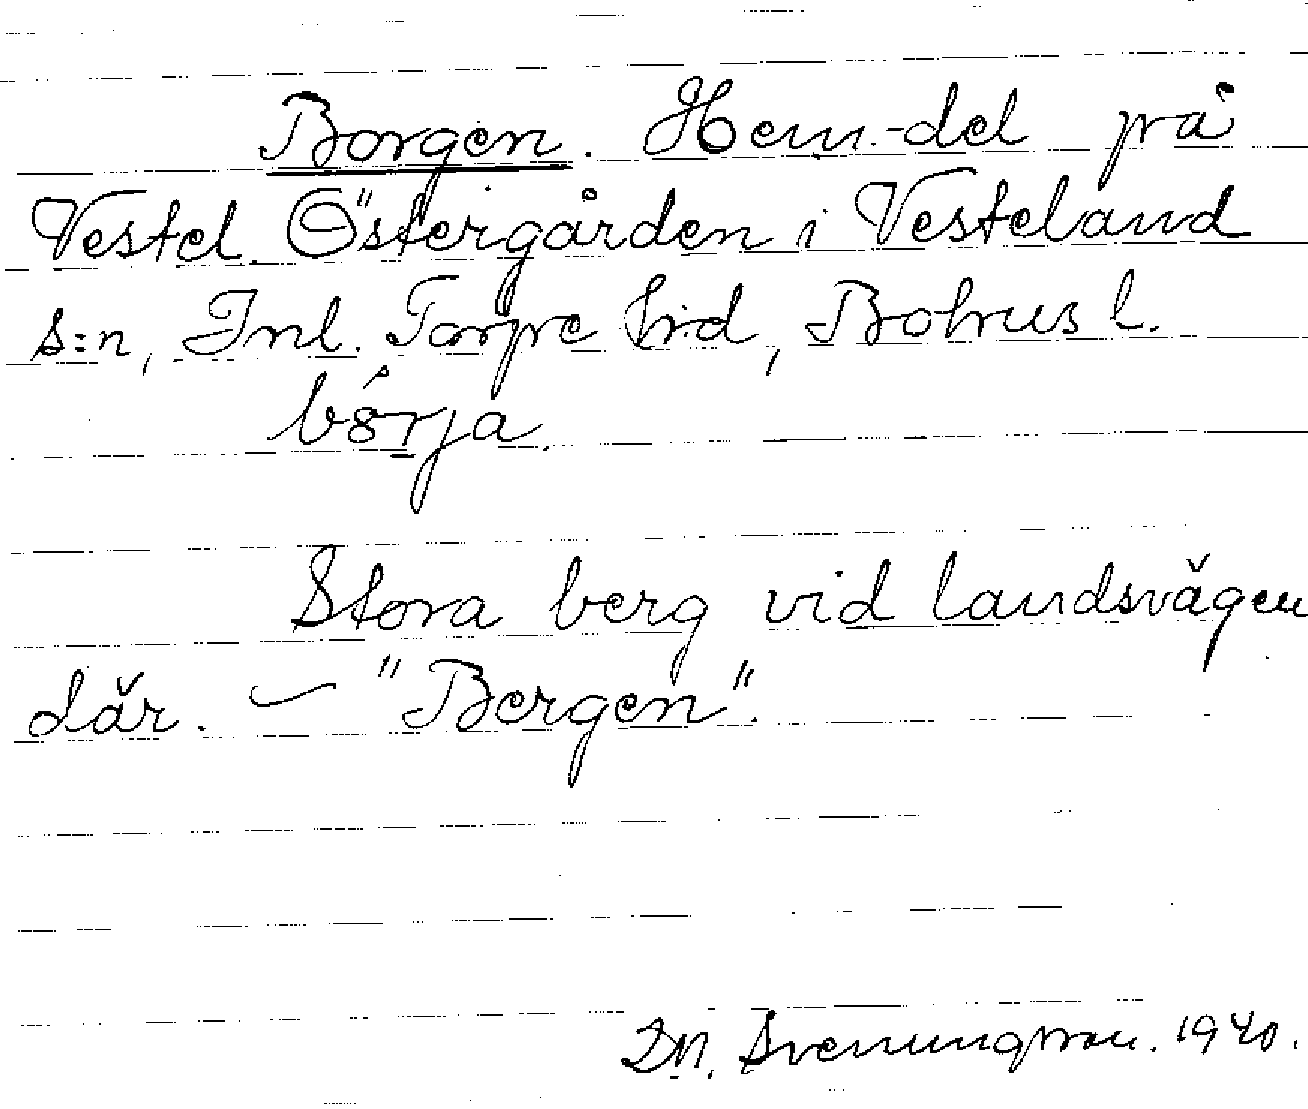 Borgen. Hem.-del på
Vestel. Östergården i Vesteland
s:n, Inl. Torpe h:d, Bohus l.
börja.
Stora berg vid landsvägen
där. — "Bergen".
D.N. Svenungsson. 1940.